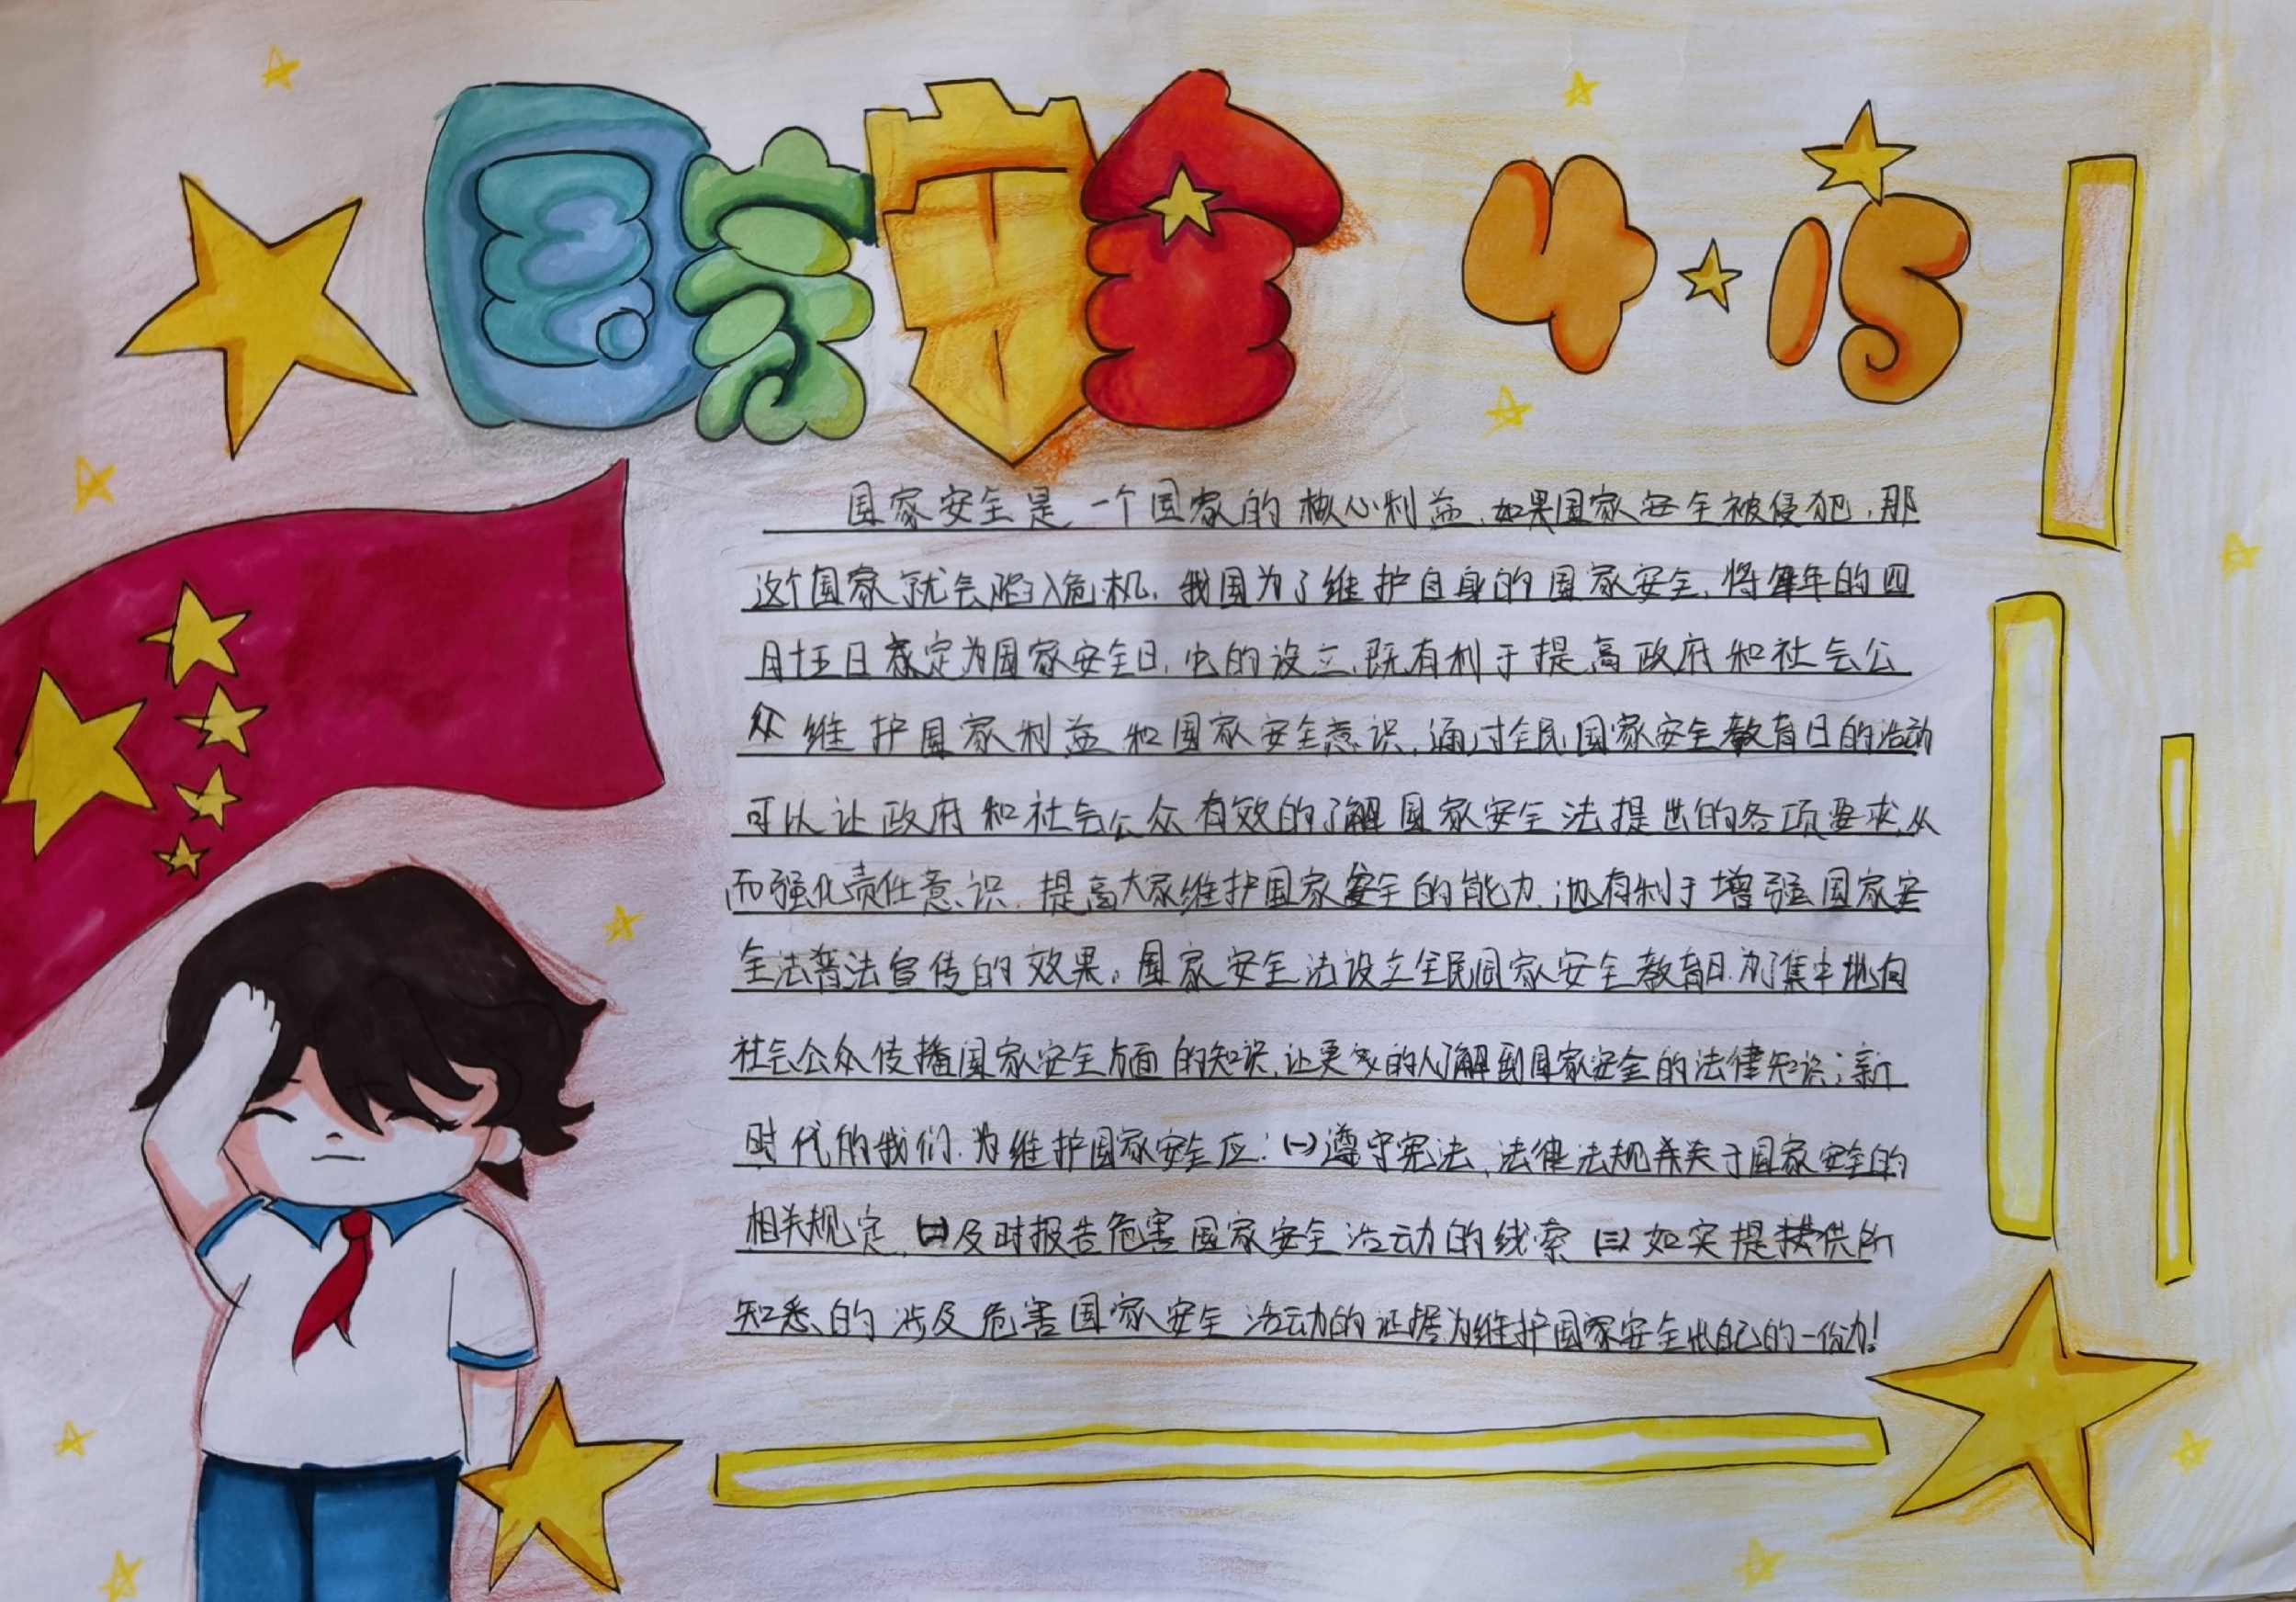 国家安全 4·15
国家安全是一个国家的核心利益,如果国家安全被侵犯,那
这个国家就会陷入危机。我国为了维护自身的国家安全,将每年的四
月十五日定为国家安全日,它的设立,既有利于提高政府和社会公
众维护国家利益和国家安全意识,通过全民国家安全教育日的活动
可以让政府和社会公众有效的了解国家安全法提出的各项要求,从
而强化责任意识,提高大家维护国家安全的能力,也有利于增强国家安
全法普法宣传的效果。国家安全法设立全民国家安全教育日,为了集中地向
社会公众传播国家安全方面的知识,让更多的人了解到国家安全的法律知识;新
时代的我们,为维护国家安全应:(一)遵守宪法、法律法规关于国家安全的
相关规定,(二)及时报告危害国家安全活动的线索(三)如实提供所
知悉的涉及危害国家安全活动的证据为维护国家安全出自己的一份力!